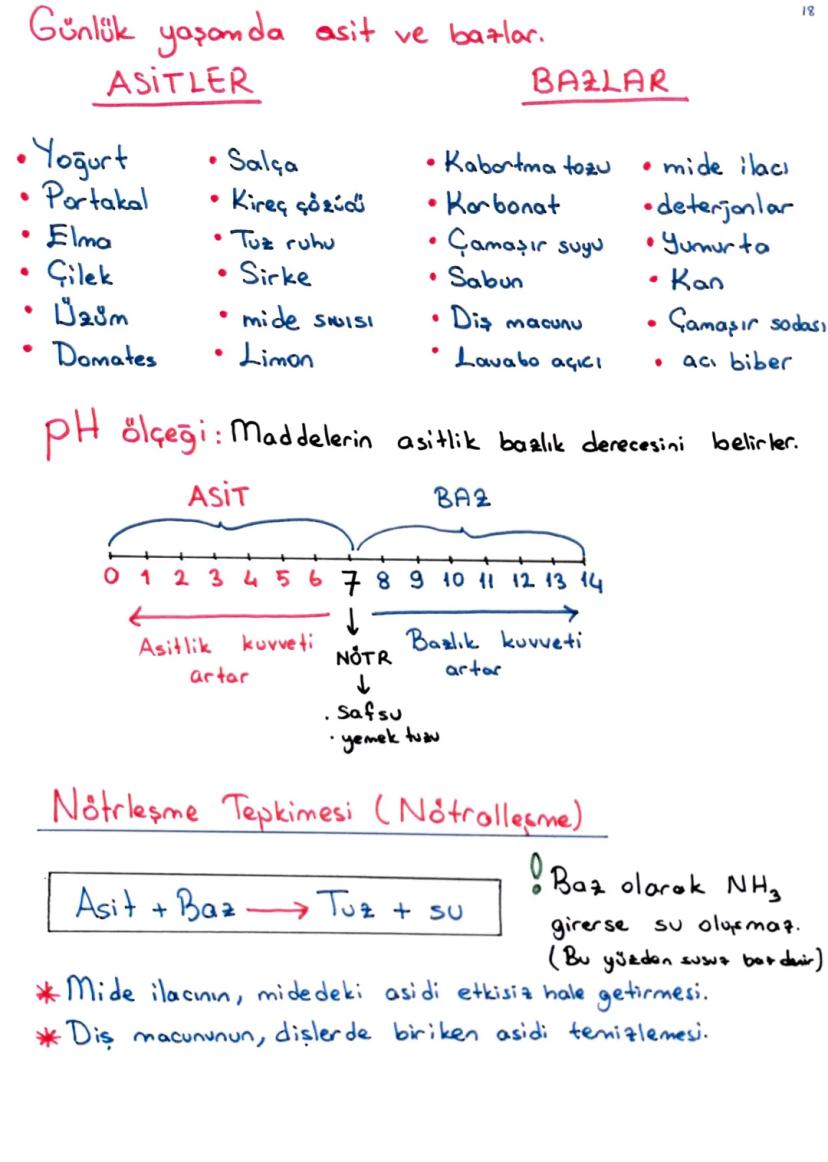 18
Günlük yaşamda asit ve bazlar.
ASİTLER
BAZLAR
• Yoğurt
• Portakal
• Elma
• Çilek
• Üzüm
• Domates
• Salça
• Kireç çözücü
• Tuz ruhu
• Sirke
• mide sıvısı
• Limon
• Kabartma tozu
• Karbonat
• Çamaşır suyu
• Sabun
• Diş macunu
• Lavabo açıcı
• mide ilacı
• deterjanlar
• Yumurta
• Kan
• Çamaşır sodası
• acı biber
pH ölçeği: Maddelerin asitlik bazlık derecesini belirler.
ASİT BAZ
0 1 2 3 4 5 6 7 8 9 10 11 12 13 14
Asitlik kuvveti
artar
NÖTR
Bazlık kuvveti
artar
. Saf su
. yemek tuzu
Nötrleşme Tepkimesi (Nötralleşme)
Asit + Baz → Tuz + su
! Baz olarak NH₃
girerse su oluşmaz.
(Bu yüzden susuz baz denir)
* Mide ilacının, midedeki asidi etkisiz hale getirmesi.
* Diş macununun, dişlerde biriken asidi temizlemesi.